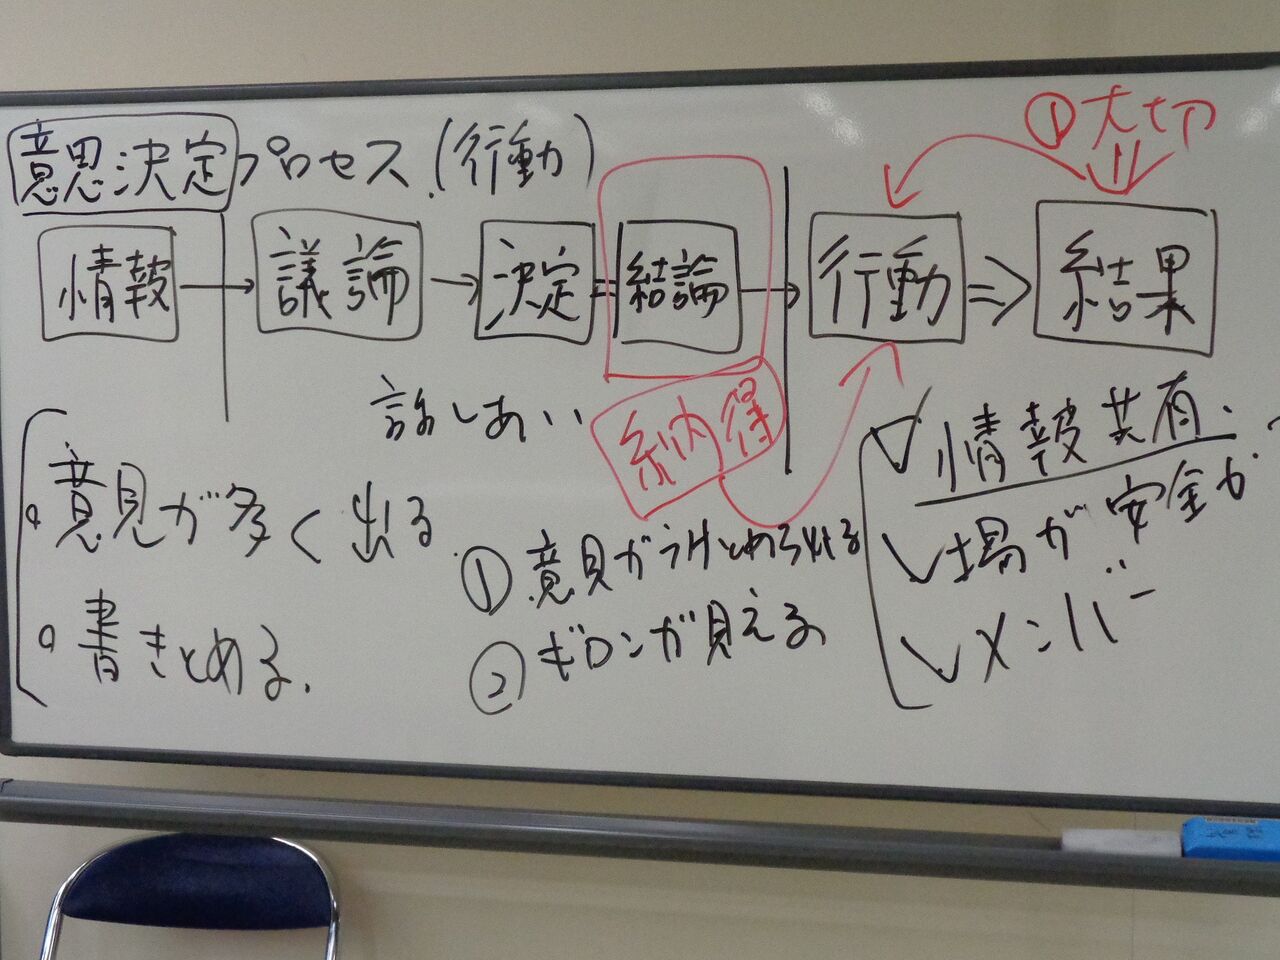 意思決定プロセス(行動)
① 大切
情報 → 議論 → 決定 = 結論 → 行動 ⇒ 結果
話しあい
納得
・意見が多く出る
・書きとめる.
① 意見がうけとめられる
② ギロンが見える
✓ 情報共有.
✓ 場が安全か.
✓ メンバー